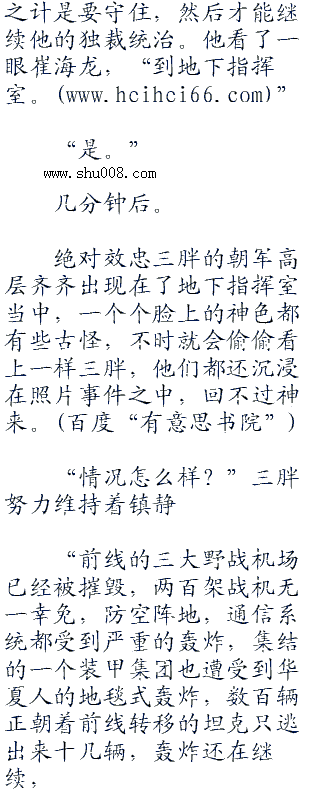 之计是要守住，然后才能继
续他的独裁统治。他看了一
眼崔海龙，“到地下指挥
室。(www.hcihci66.com)”
“是。”
www.shu008.com
几分钟后。
绝对效忠三胖的朝军高
层齐齐出现在了地下指挥室
当中，一个个脸上的神色都
有些古怪，不时就会偷偷看
上一样三胖，他们都还沉浸
在照片事件之中，回不过神
来。(百度“有意思书院”)
“情况怎么样？”三胖
努力维持着镇静
“前线的三大野战机场
已经被摧毁，两百架战机无
一幸免，防空阵地，通信系
统都受到严重的轰炸，集结
的一个装甲集团也遭受到华
夏人的地毯式轰炸，数百辆
正朝着前线转移的坦克只逃
出来十几辆，轰炸还在继
续，